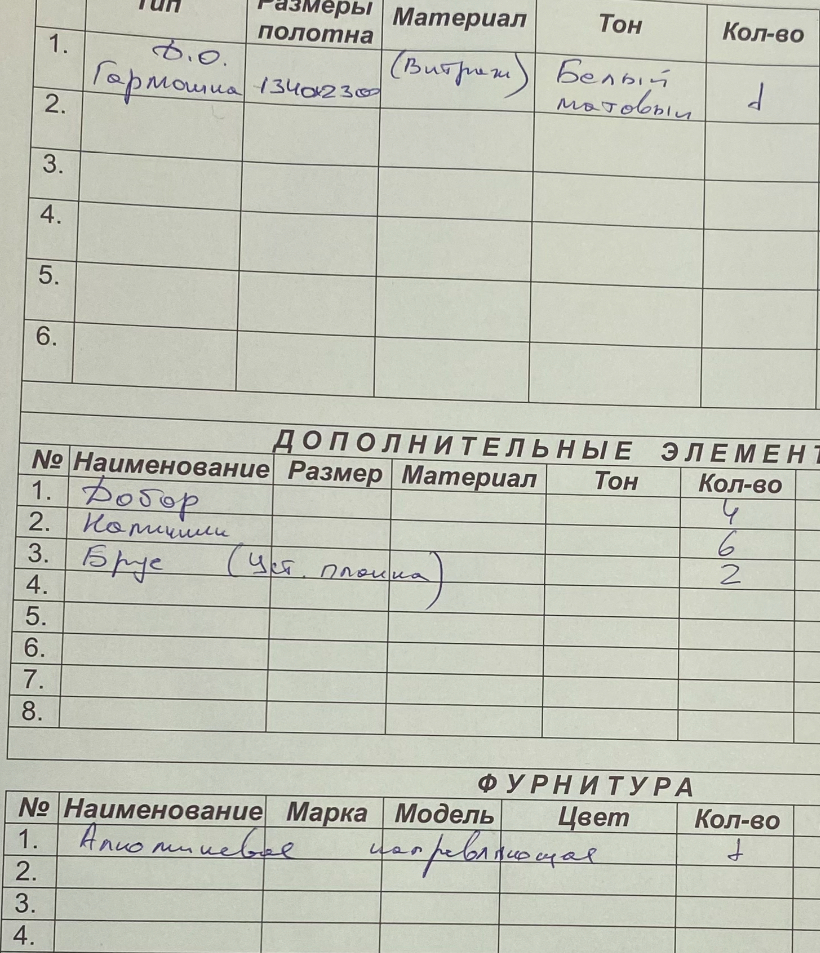 Тип Размеры полотна Материал Тон Кол-во
1. Д.О. Гармошка 1340x2300 (Витраж) Белый матовый 1
2.
3.
4.
5.
6.
ДОПОЛНИТЕЛЬНЫЕ ЭЛЕМЕНТ
№ Наименование Размер Материал Тон Кол-во
1. Добор 4
2. Наличники 6
3. Брус (Уст. планка) 2
4.
5.
6.
7.
8.
ФУРНИТУРА
№ Наименование Марка Модель Цвет Кол-во
1. Алюминевая направляющая 1
2.
3.
4.